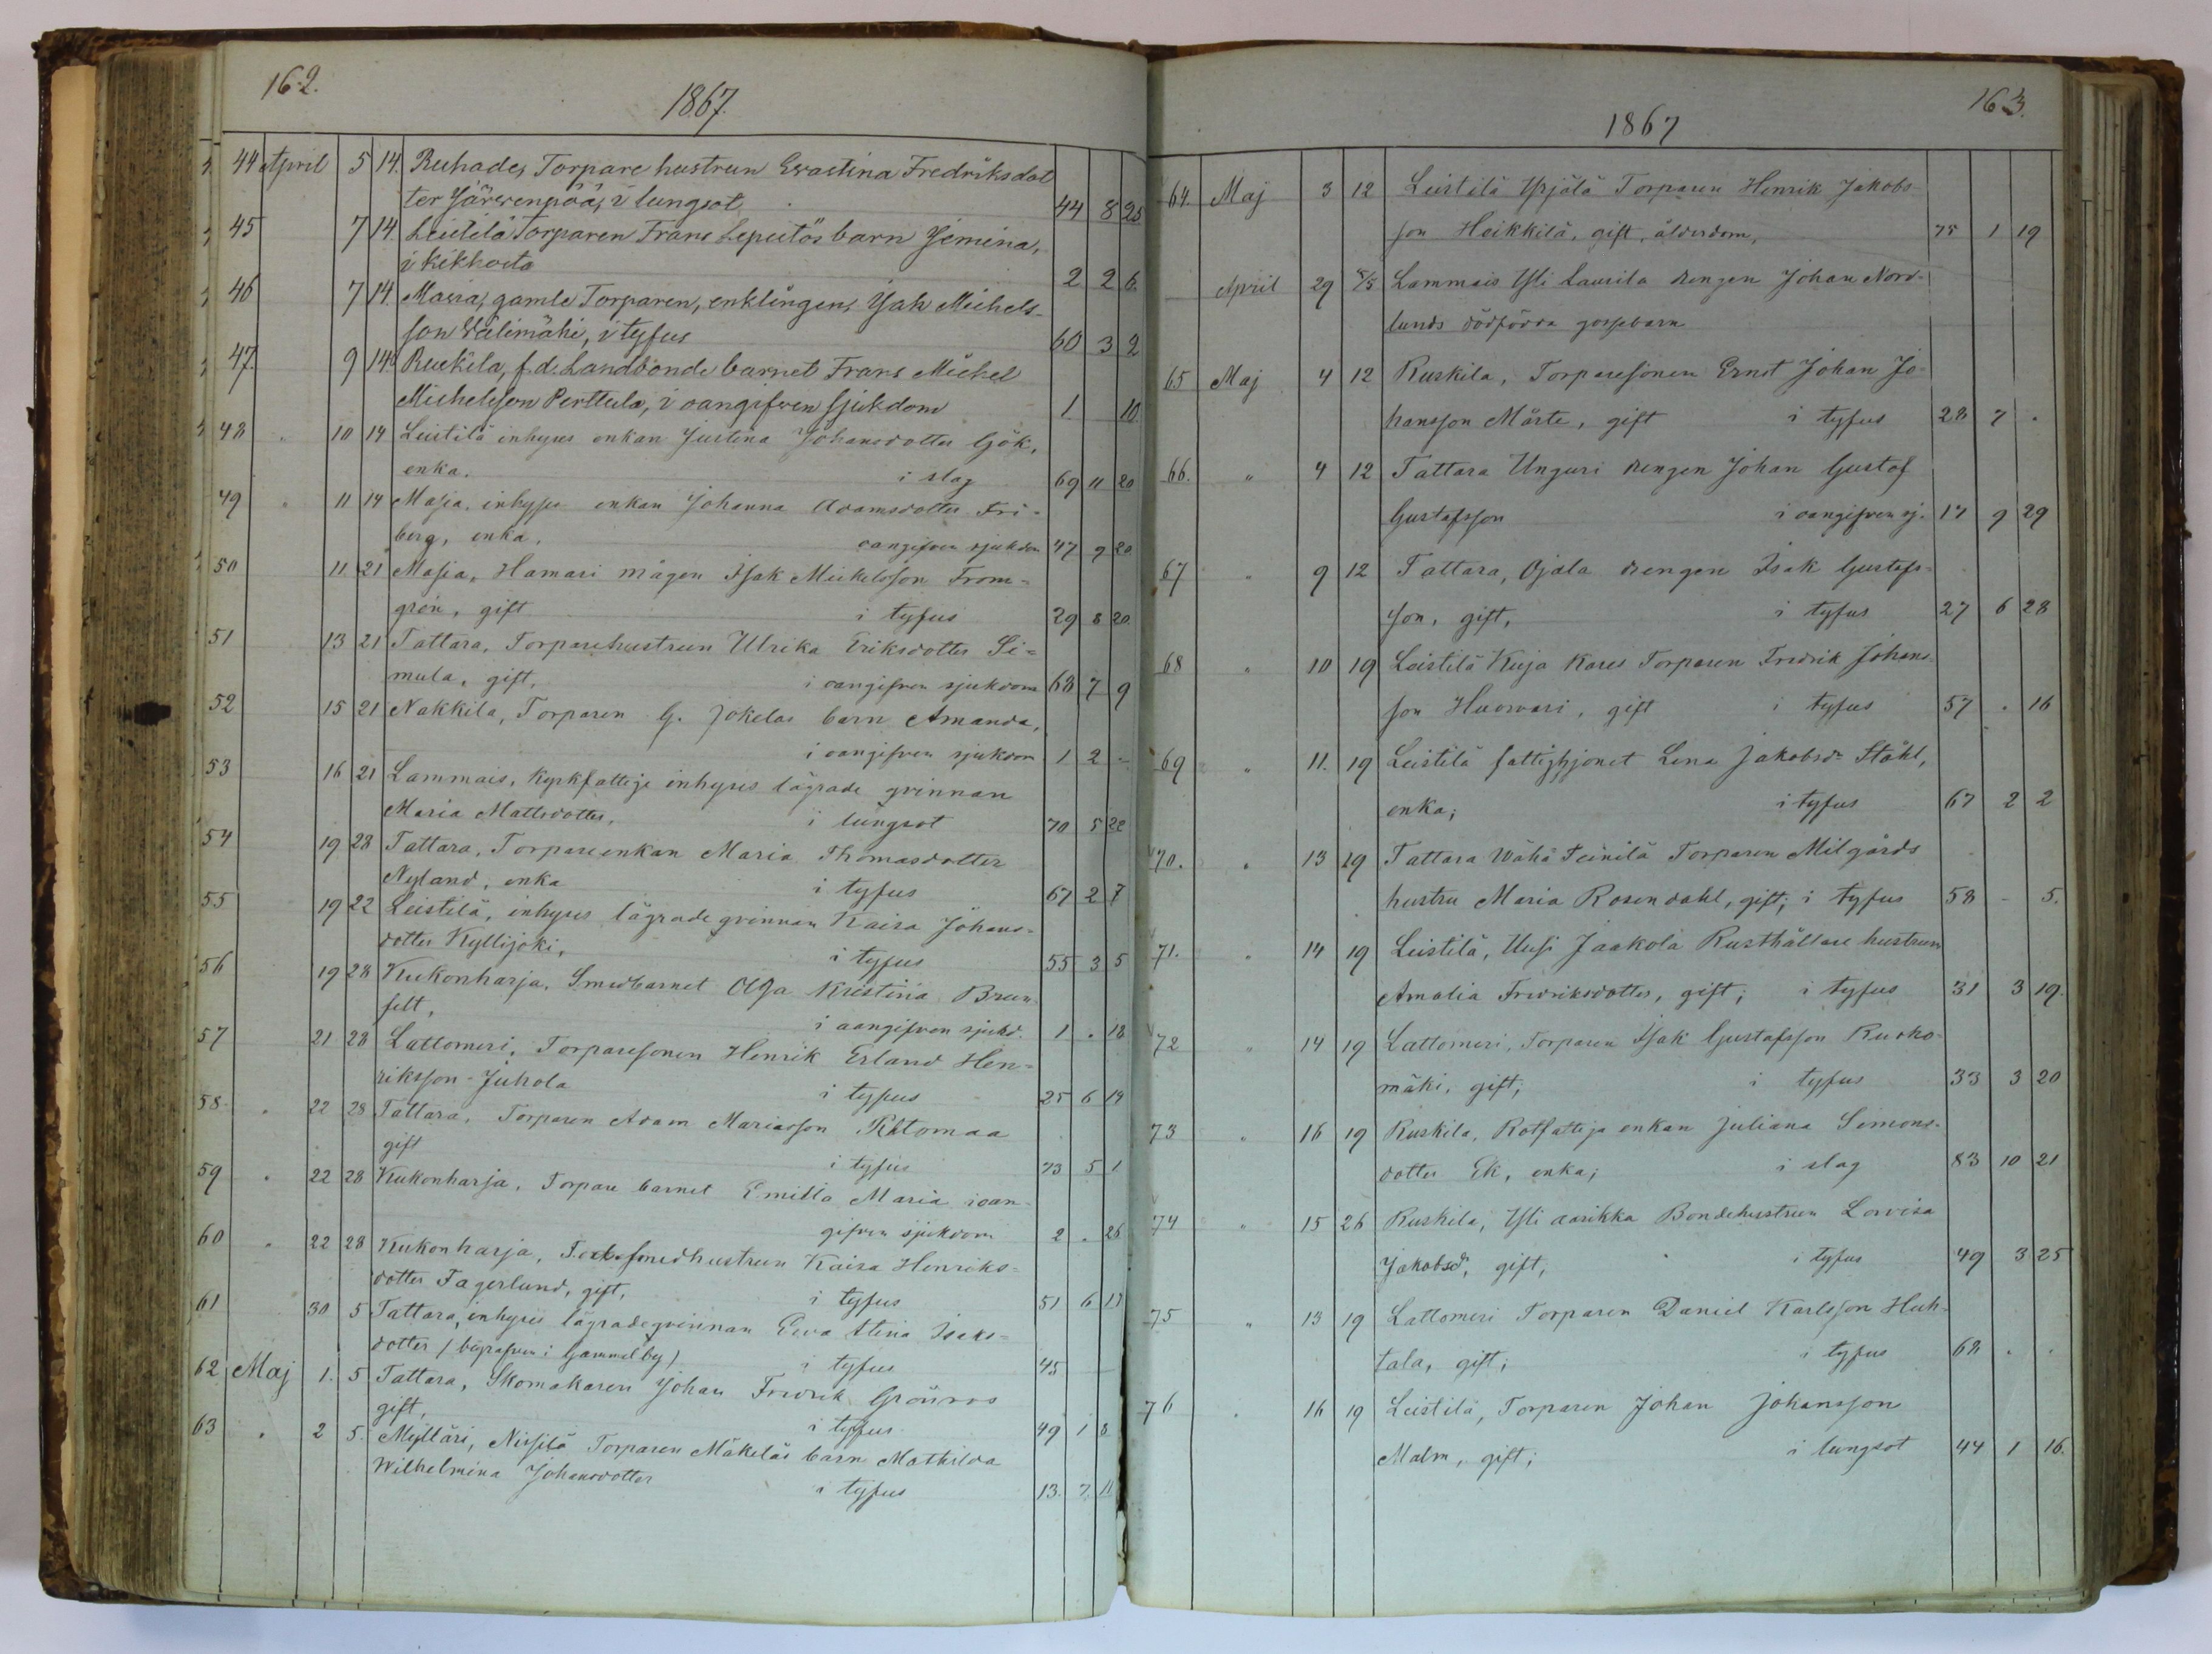 162.
1867.
44 April 5 14. Ruhade, Torpare hustrun Evastina Fredriksdot
ter Järvenpää, i lungsot 44 8 25
45 7 14. Leistilä Torparen Frans Lepistös barn Jemina,
i kikhosta 2 2 6
46 7 14. Masia, gamle Torparen, enklingen, Isak Michels-
son Välimäki, i tyfus 60 3 2
47. 9 14. Ruskila, f.d. Landbonde barnet Frans Michel
Michelsson Perttula, i oangifven sjukdom 1 10.
48 " 10 14 Leistilä inhyses enkan Justina Johansdotter Gök,
enka. i slag 69 11 20
49 " 11 14 Masia, inhyses enkan Johanna Adamsdotter Fri-
berg, enka. oangifven sjukdom 47 9 20.
50 11. 21 Masia, Hamari mågen Isak Mickelsson From-
grén, gift i tyfus 29 8 20.
51 13 21 Tattara, Torparehustrun Ulrika Eriksdotter Si-
mula, gift, i oangifven sjukdom 68 7 9
52 15 21 Nakkila, Torparen G. Jokelas barn Amanda,
i oangifven sjukdom 1 2 -
53 16 21 Lammais, Kyrkfattige inhyses lägrade qvinnan
Maria Mattsdotter, i lungsot 70 5 22
54 19 28 Tattara, Torpareenkan Maria Thomasdotter
Nyland, enka i tyfus 67 2 7
55 19 22 Leistilä, inhyses lägrade qvinnan Kaisa Johans-
dotter Kyllijoki, i tyfus 55 3 5
56 19 28 Kukonharja, Smedbarnet Olga Kristina Brun-
felt, i oangifven sjukd. 1 . 18
57 21 28 Lattomeri, Torparesonen Henrik Erland Hen-
riksson-Juhola i tyfus 25 6 19
58. " 22 28 Tattara, Torparen Adam Mariasson Ritomaa
gift i tyfus 73 5 1
59 " 22 28 Kukonharja, Torpare barnet Emilia Maria i oan-
gifven sjukdom 2 . 26
60 " 22 28 Kukonharja, smedhustrun Kaisa Henriks-
dotter Fagerlund, gift, i tyfus 51 6 13
61 30 5 Tattara, inhyses lägradeqvinnan Ewa Stina Isaks-
dotter / begrafven i Gammelby / i tyfus 45
62 Maj 1. 5 Tattara, Skomakaren Johan Fredrik Grönroos
gift, i tyfus 49 1 8
63 " 2 5. Mylläri, Nissilä Torparen Mäkeläs barn Mathilda
Wilhelmina Johansdotter i tyfus 13. 7. 11
163.
1867
64. Maj 3 12 Leistilä Yrjölä Torparen Henrik Jakobs-
son Heikkilä, gift, ålderdom, 75 1 19
April 29 5/5 Lammais Yli Laurila drengen Johan Nord-
lunds dödfödda gossebarn
65 Maj 4 12 Ruskila, Torparesonen Ernst Johan Jo-
hansson Märte, gift i tyfus 28 7 .
66. " 4 12 Tattara Unguri drengen Johan Gustof
Gustafsson i oangifven sj. 17 9 29
67 " 9 12 Tattara, Ojala drengen Isak Gustafs-
son, gift, i tyfus 27 6 28
68 " 10 19 Leistilä Kuja Kares Torparen Fredrik Johans-
son Huovari, gift i tyfus 57 . 16
69 " 11. 19 Leistilä fattighjonet Lena Jakobsdr Ståhl,
enka; i tyfus 67 2 2
70. " 13 19 Tattara Wähä Teinilä Torparen Milgårds
hustru Maria Rosendahl, gift; i tyfus 58 - 5.
71. " 14 19 Leistilä, Uusi Jaakola Rusthållare hustrun
Amalia Fredriksdotter, gift; i tyfus 31 3 19.
72 " 14 19 Lattomeri, Torparen Isak Gustafsson Rusko-
mäki, gift; i tyfus 33 3 20
73 " 16 19 Ruskila, Rotfattiga enkan Juliana Simons-
dotter Ek, enka; i slag 83 10 21
74 " 15 26 Ruskila, Yli aarikka Bondehustrun Lovisa
Jakobsdr, gift, i tyfus 49 3 25
75 " 13 19 Lattomeri Torparen Daniel Karlsson Huh-
tala, gift; i tyfus 68 . .
76 " 16 19 Leistilä, Torparen Johan Johansson
Malm, gift; i lungsot 44 1 16.